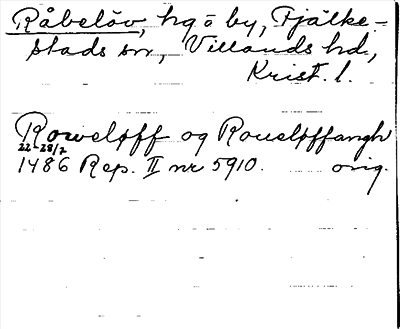 Råbelöv, hg o by, Fjälke-
stads sn, Villands hd,
Krist. l.
Roweløff og Roueløffangh
22-28/7
1486 Rep. II nr 5910. orig.